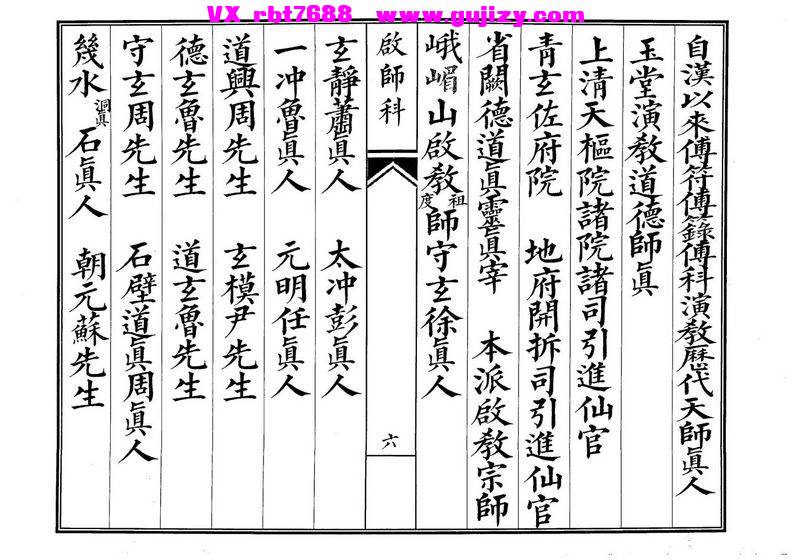 VX rbt7688 www.gujizy.com
自漢以來傳符傳籙傳科演教歷代天師眞人
玉堂演教道德師眞
上清天樞院諸院諸司引進仙官
青玄佐府院 地府開拆司引進仙官
省闕德道眞靈眞宰 本派啟教宗師
峨嵋山啟教祖度師守玄徐眞人
啟師科
六
玄靜蕭眞人 太冲彭眞人
一冲魯眞人 元明任眞人
道興周先生 玄模尹先生
德玄魯先生 道玄魯先生
守玄周先生 石壁道眞周眞人
幾水洞眞石眞人 朝元蘇先生